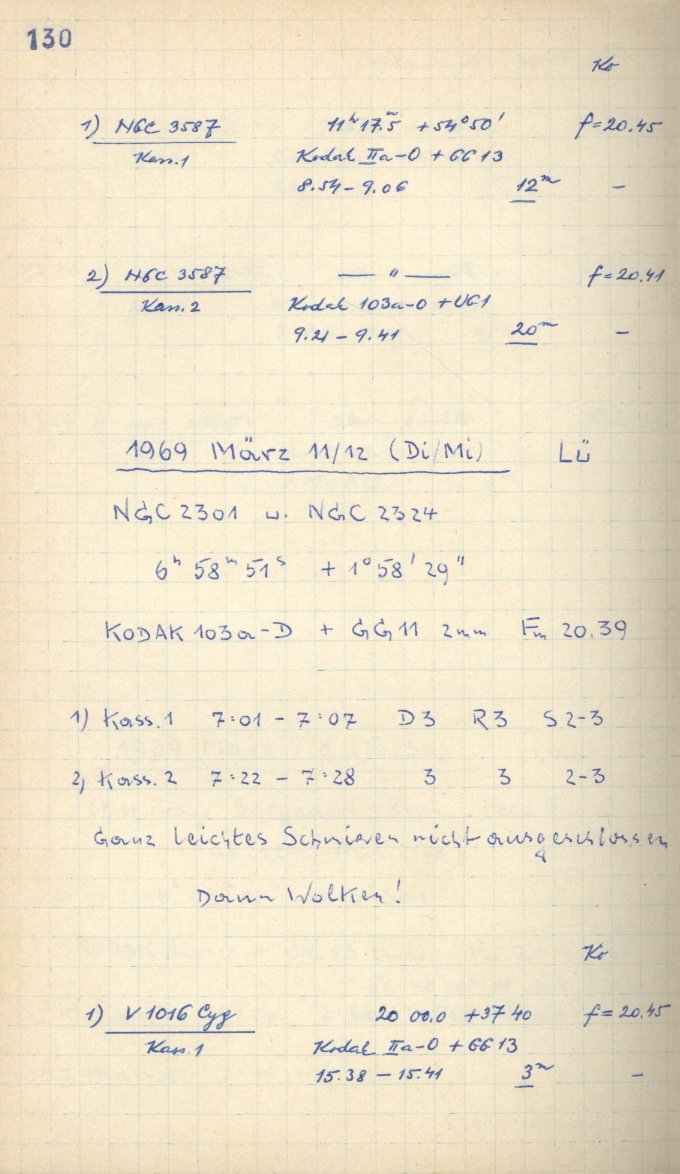 130
Ko
1) NGC 3587 11ʰ17ᵐ.5 +54°50' f=20.45
Kass.1 Kodak IIa-O + GG 13
8.54 – 9.06 12ᵐ –
2) NGC 3587 — " — f=20.41
Kass.2 Kodak 103a-O + UG1
9.21 – 9.41 20ᵐ –
1969 März 11/12 (Di/Mi) Lü
NGC 2301 u. NGC 2324
6ʰ 58ᵐ 51ˢ + 1° 58' 29"
KODAK 103a-D + GG11 2mm Fm 20.39
1) Kass.1 7:01 – 7:07 D3 R3 S2-3
2) Kass.2 7:22 – 7:28 3 3 2-3
Ganz leichtes Schmieren nicht ausgeschlossen
Dann Wolken!
Ko
1) V 1016 Cyg 20 00.0 +37 40 f=20.45
Kass.1 Kodak IIa-O + GG 13
15.38 – 15.41 3ᵐ –